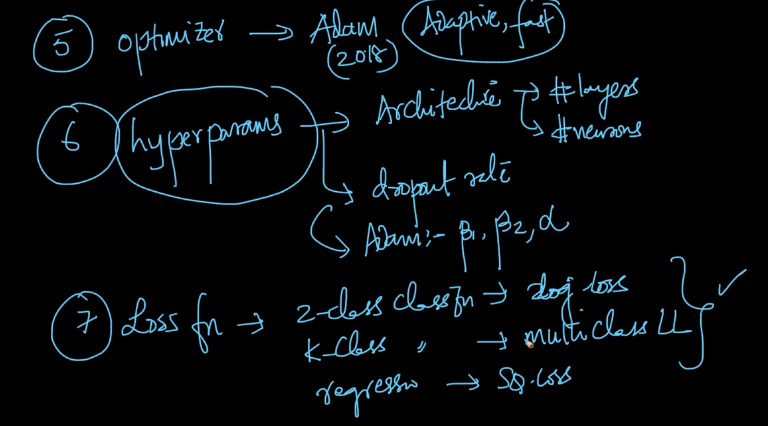 5 optimizer → Adam Adaptive, fast
(2018)
6 hyperparams → Architectue → #layers
→ #neurons
→ dropout rate
→ Adam:- β1, β2, α
7 Loss fn → 2-class classfn → log loss
K-class " → multiclass LL
regression → SQ. loss